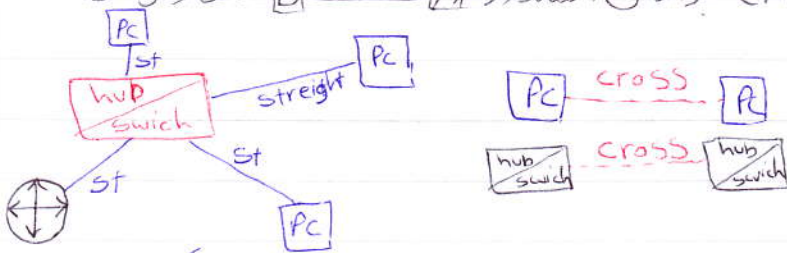 Pc
st
hub
swich
streight
Pc
st
St
Pc
Pc
cross
Pc
hub
swich
cross
hub
swich